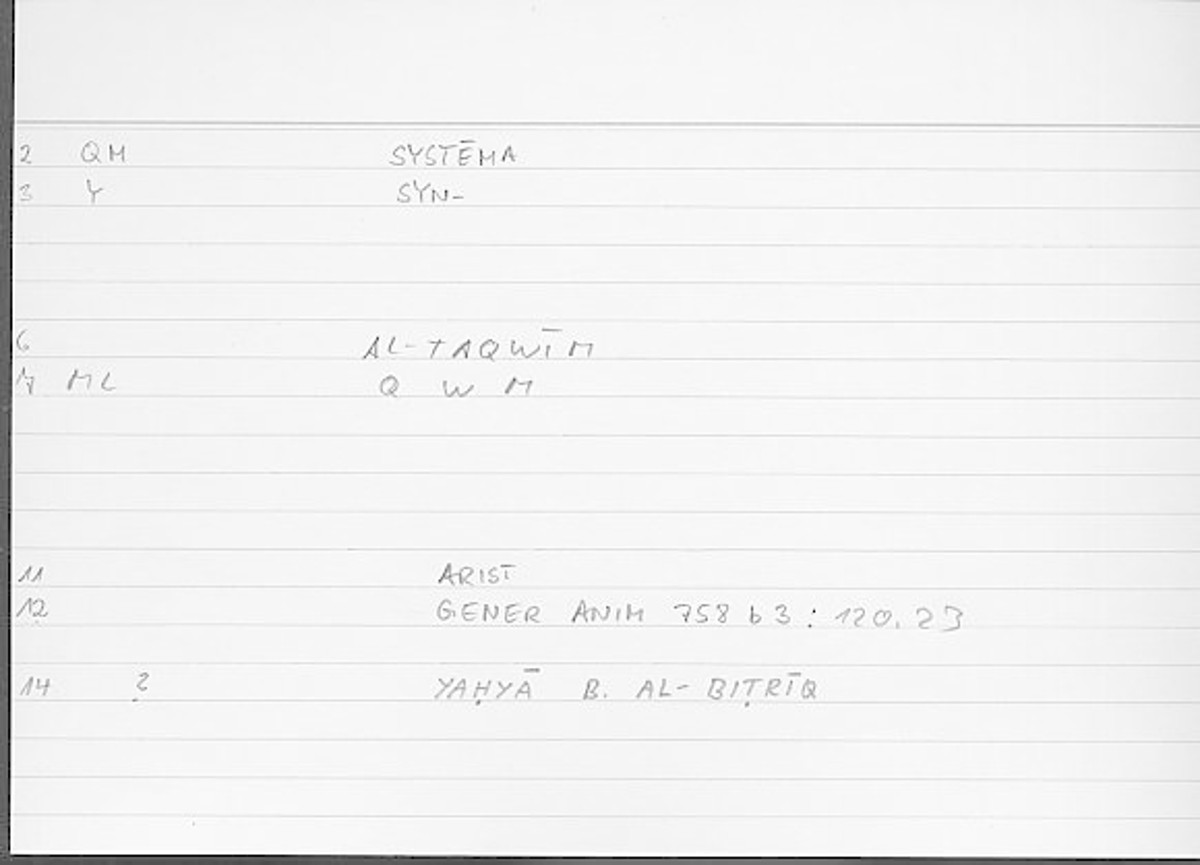 2 QM SYSTĒMA
3 Y SYN-
6 AL-TAQWĪM
7 ML Q W M
11 ARIST
12 GENER ANIM 758 b 3 : 120.23
14 ? YAḤYĀ B. AL-BIṬRĪQ